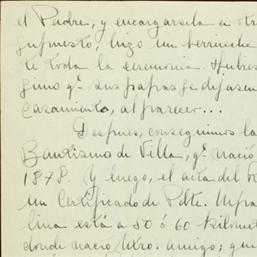 el Padre, y encargarsela a otr
supuesto, hizo un berrinche
te toda la ceremonia. Hubies
gino qe. sus papas se dijesen
casamiento, al parecer...
Despues, conseguimos la
Bautismo de Villa, qe. nació
1878. Y luego, el acta del
un Certificado de Pbte.
lina está a 50 ó 60 kilomet
donde nació Ntro. amigo; que